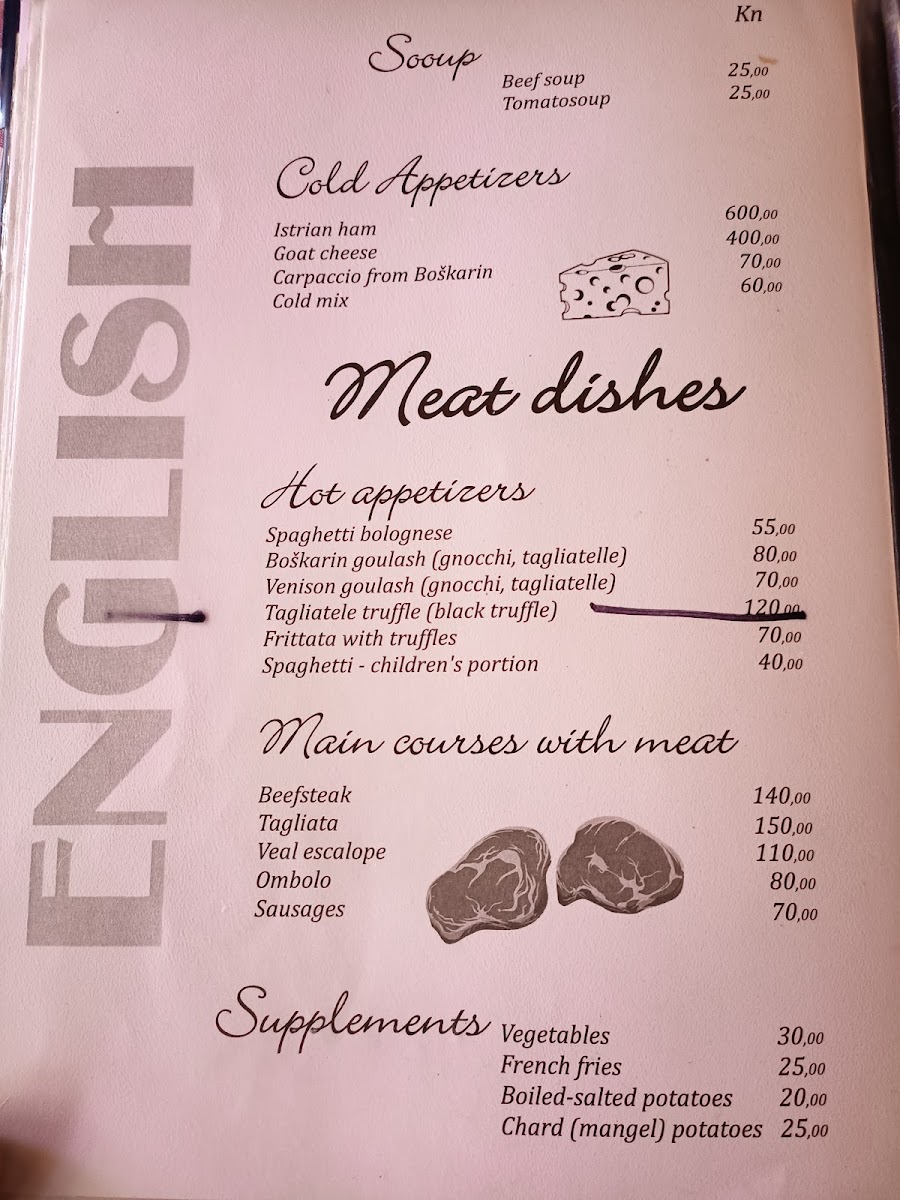 Kn
Sooup
Beef soup 25,00
Tomatosoup 25,00
ENGLISH
Cold Appetizers
Istrian ham 600,00
Goat cheese 400,00
Carpaccio from Boškarin 70,00
Cold mix 60,00
Meat dishes
Hot appetizers
Spaghetti bolognese 55,00
Boškarin goulash (gnocchi, tagliatelle) 80,00
Venison goulash (gnocchi, tagliatelle) 70,00
Tagliatele truffle (black truffle) 120,00
Frittata with truffles 70,00
Spaghetti - children's portion 40,00
Main courses with meat
Beefsteak 140,00
Tagliata 150,00
Veal escalope 110,00
Ombolo 80,00
Sausages 70,00
Supplements
Vegetables 30,00
French fries 25,00
Boiled-salted potatoes 20,00
Chard (mangel) potatoes 25,00